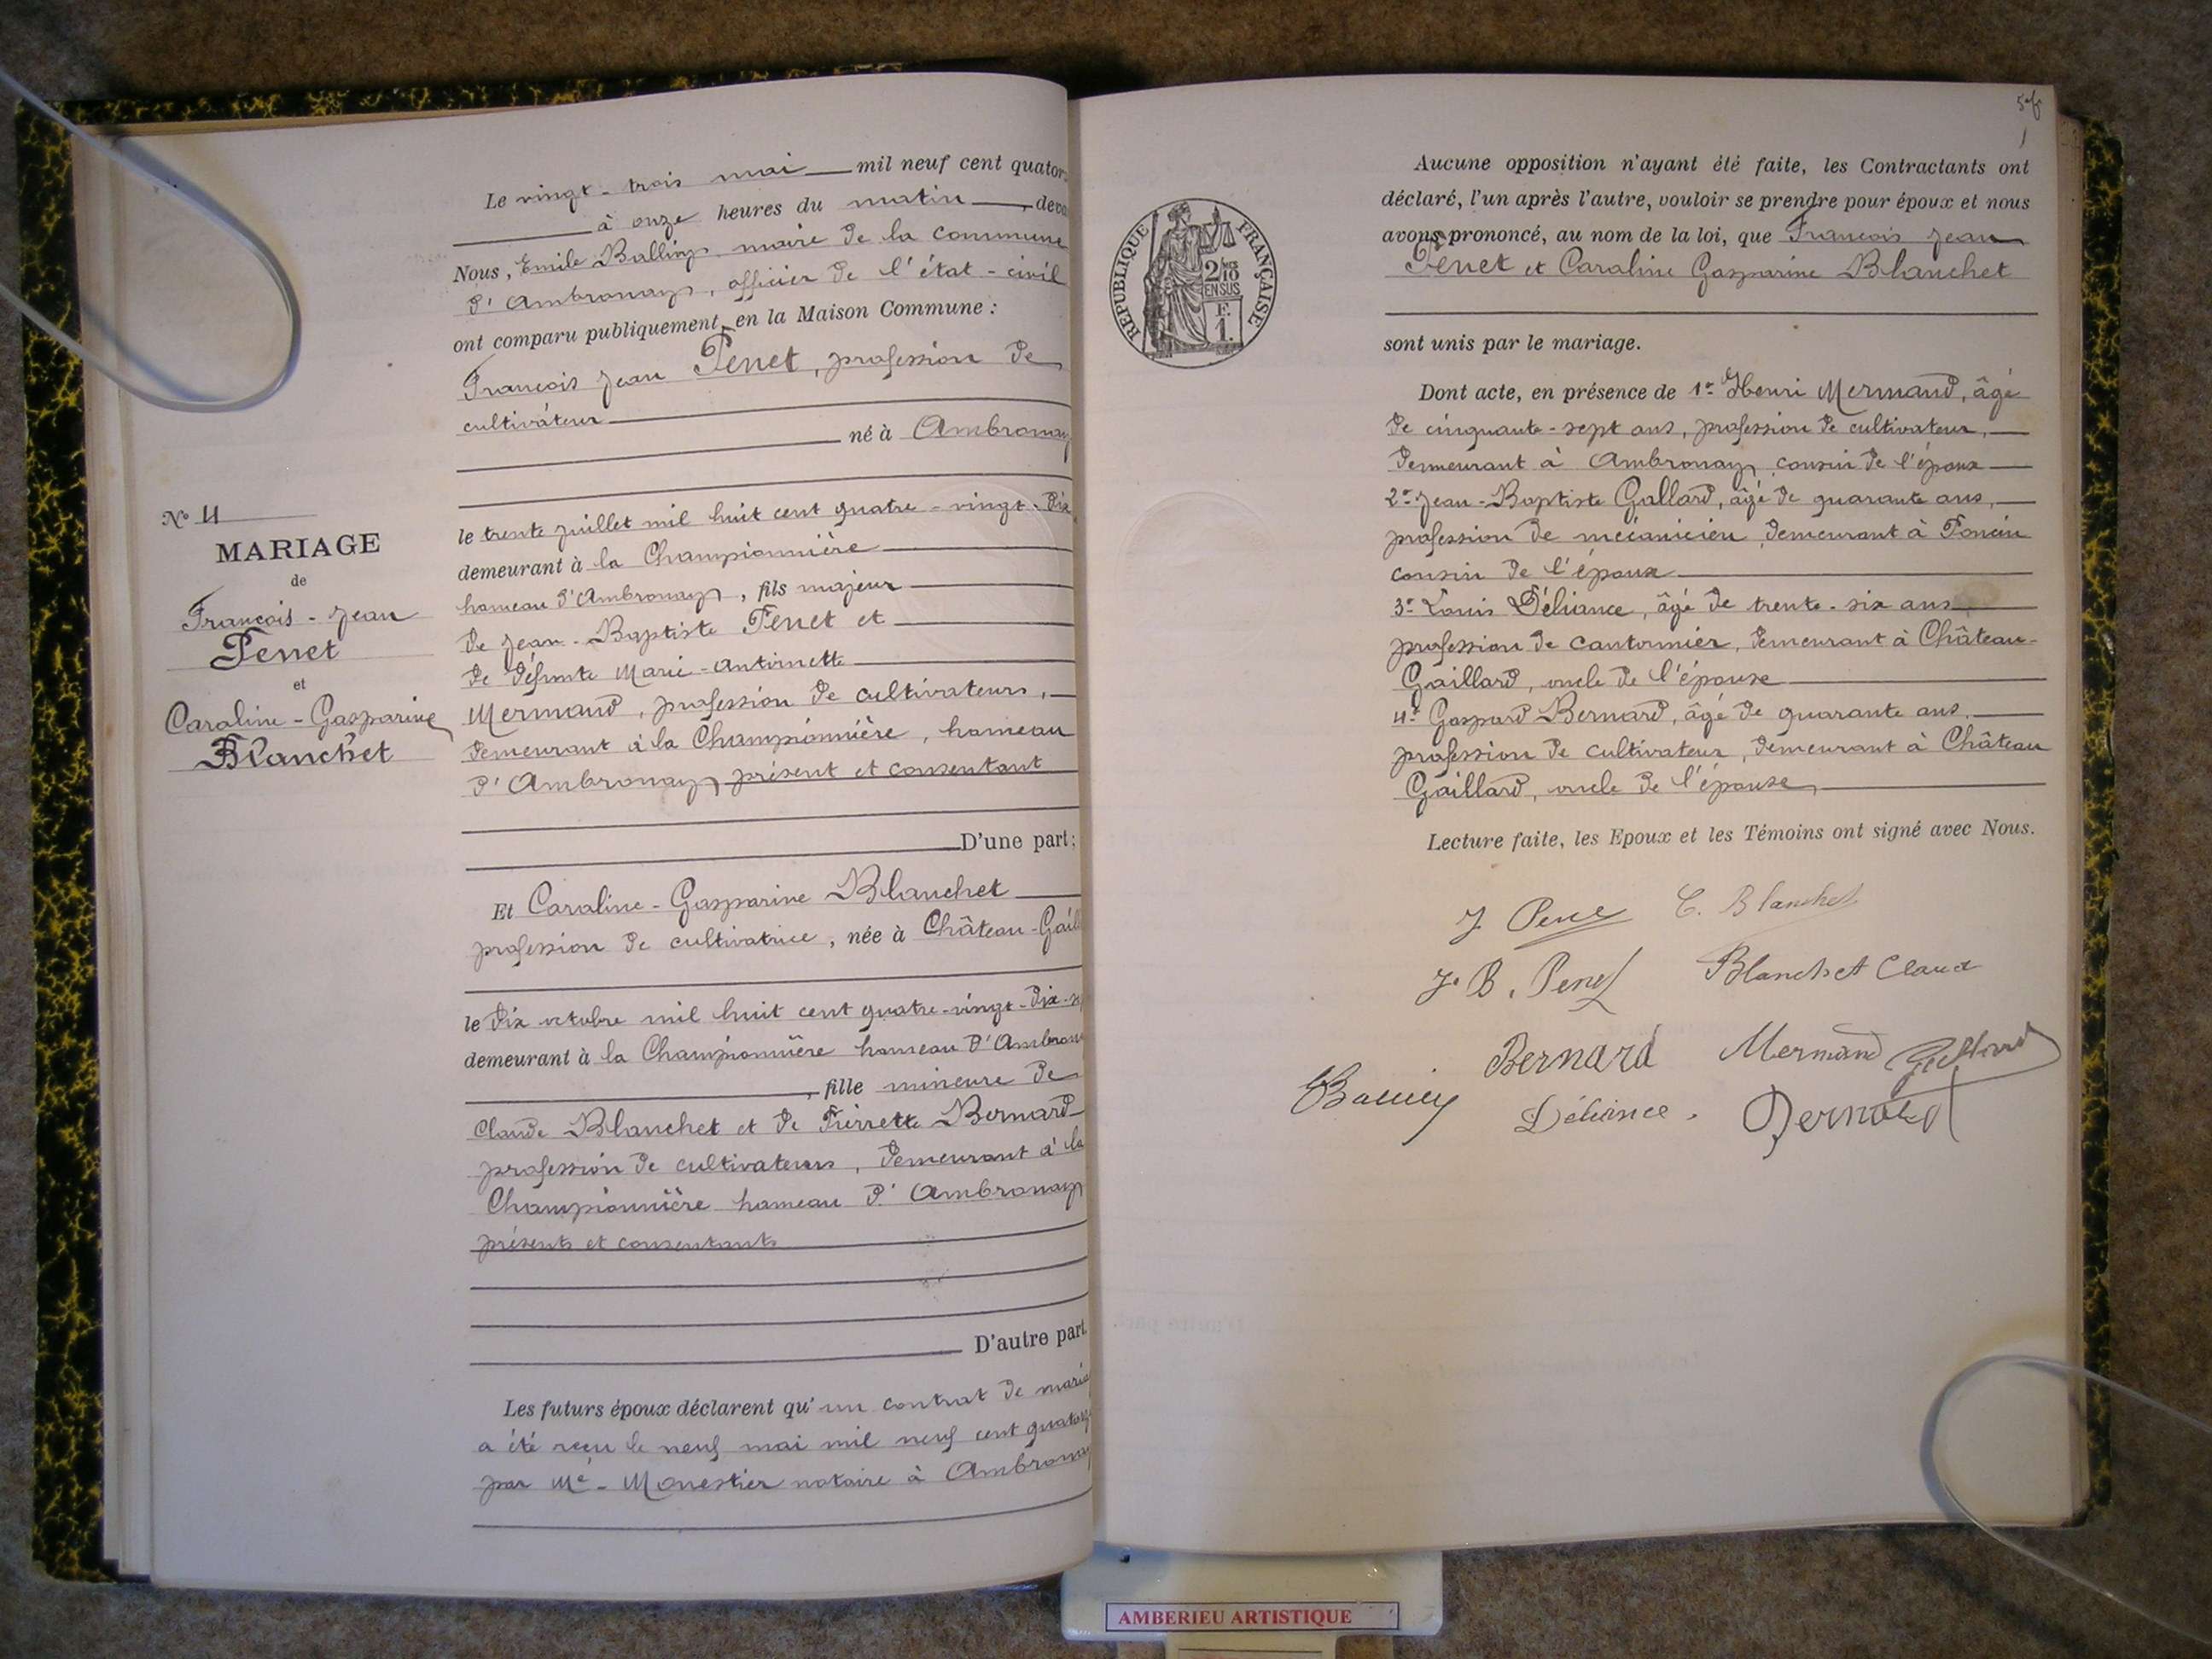 Le vingt-trois mai mil neuf cent quator
à onze heures du matin, deva
Nous, Emile maire de la commune
d'Ambronay, officier de l'état-civil
ont comparu publiquement en la Maison Commune :
François Jean Penet, profession de
cultivateur
né à Ambronay
le trente juillet mil huit cent quatre-vingt-dix
demeurant à la Championnière
hameau d'Ambronay, fils majeur
de Jean-Baptiste Penet et
de défunte Marie-Antoinette
Mermand, profession de cultivateurs,
demeurant à la Championnière, hameau
d'Ambronay présent et consentant
D'une part;
Et Caroline-Gasparine Blanchet
profession de cultivatrice, née à Château-Gaill
le dix octobre mil huit cent quatre-vingt-dix-s
demeurant à la Championnière hameau d'Ambrona
, fille mineure de
Claude Blanchet et de Pierrette Bernard
profession de cultivateurs, demeurant à la
Championnière hameau d'Ambronay
présents et consentants
D'autre part.
Les futurs époux déclarent qu'un contrat de maria
a été reçu le neuf mai mil neuf cent quatorz
par Me Monestier notaire à Ambronay
N° 4
MARIAGE
de
François-Jean
Penet
et
Caroline-Gasparine
Blanchet
RÉPUBLIQUE FRANÇAISE
2/10
EN SUS
F.
1.
Aucune opposition n'ayant été faite, les Contractants ont
déclaré, l'un après l'autre, vouloir se prendre pour époux et nous
avons prononcé, au nom de la loi, que François Jean
Penet et Caroline Gasparine Blanchet
sont unis par le mariage.
Dont acte, en présence de 1° Henri Mermand, âgé
de cinquante-sept ans, profession de cultivateur,
demeurant à Ambronay cousin de l'époux
2° Jean-Baptiste Gallard, âgé de quarante ans,
profession de mécanicien demeurant à Poncin
cousin de l'époux
3° Louis Déliance, âgé de trente-six ans
profession de cantonnier, demeurant à Château-
Gaillard, oncle de l'épouse
4° Gaspard Bernard, âgé de quarante ans,
profession de cultivateur, demeurant à Château
Gaillard, oncle de l'épouse,
Lecture faite, les Epoux et les Témoins ont signé avec Nous.
J. Penet C. Blanchet
J. B. Penet Blanchet Claud
Bernard Mermand Gallard
Déliance. Bernard
AMBERIEU ARTISTIQUE